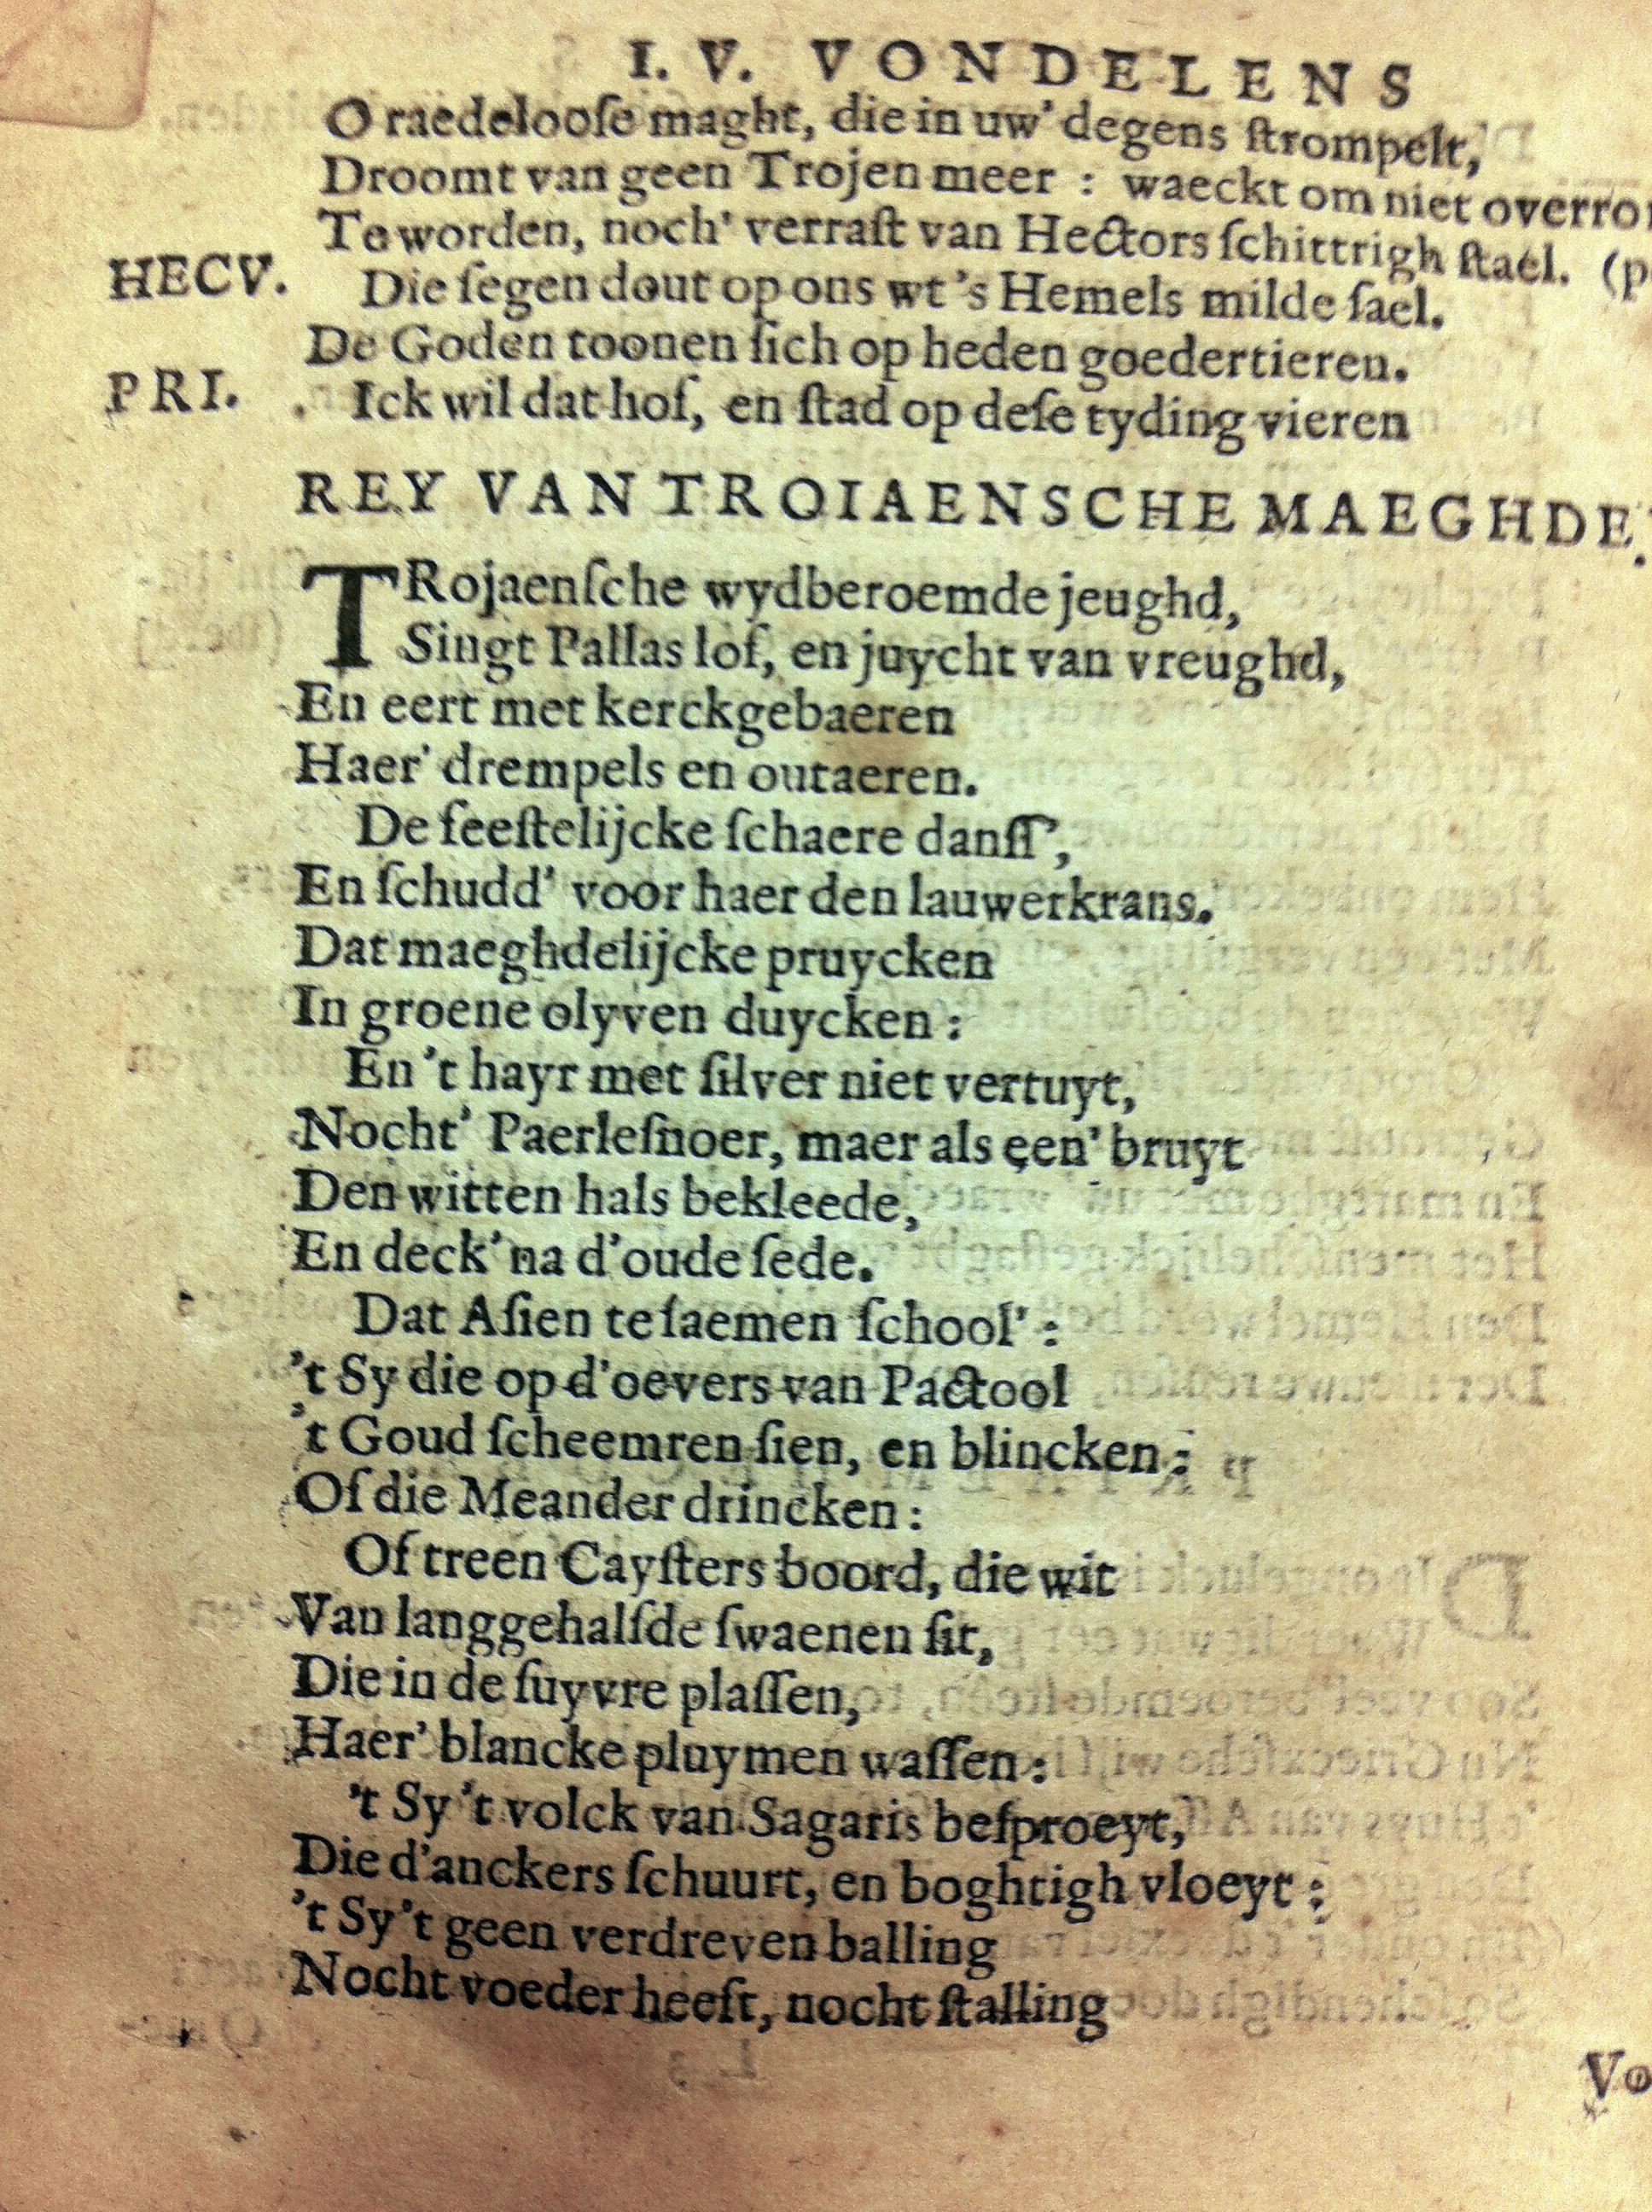 I. V. VONDELENS
O raedelooſe maght, die in uw' degens ſtrompelt,
Droomt van geen Trojen meer : waeckt om niet overro
Te worden, noch' verraſt van Hectors ſchittrigh ſtael. (p
HECV. Die ſegen dout op ons wt 's Hemels milde ſael.
De Goden toonen ſich op heden goedertieren.
PRI. Ick wil dat hof, en ſtad op deſe tyding vieren
REY VAN TROIAENSCHE MAEGHDE
TRojaenſche wydberoemde jeughd,
Singt Pallas lof, en juycht van vreughd,
En eert met kerckgebaeren
Haer' drempels en outaeren.
De feeſtelijcke ſchaere danſſ',
En ſchudd' voor haer den lauwerkrans.
Dat maeghdelijcke pruycken
In groene olyven duycken :
En 't hayr met ſilver niet vertuyt,
Nocht' Paerleſnoer, maer als een' bruyt
Den witten hals bekleede,
En deck' na d'oude ſede.
Dat Aſien te ſaemen ſchool' :
't Sy die op d'oevers van Pactool
't Goud ſcheemren ſien, en blincken :
Of die Meander drincken :
Of treen Cayſters boord, die wit
Van langgehalſde ſwaenen ſit,
Die in de ſuyvre plaſſen,
Haer' blancke pluymen waſſen :
't Sy 't volck van Sagaris beſproeyt,
Die d'anckers ſchuurt, en boghtigh vloeyt :
't Sy 't geen verdreven balling
Nocht voeder heeft, nocht ſtalling
Vo